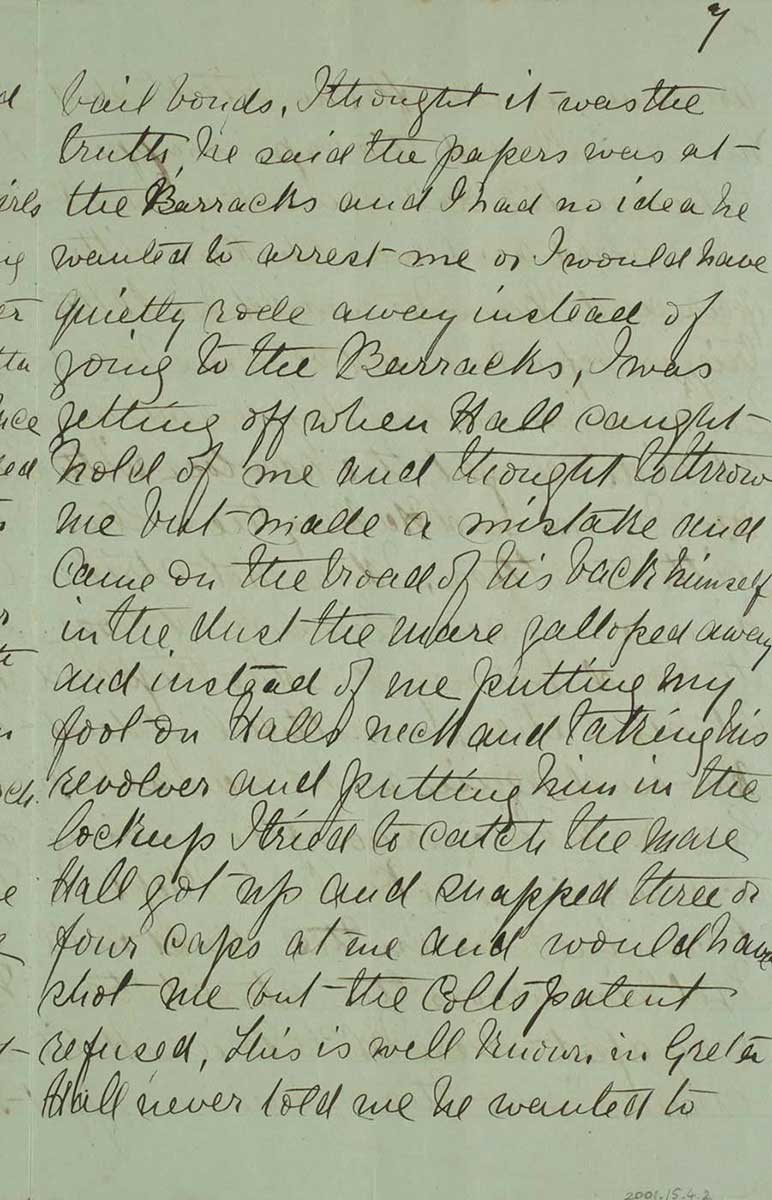 7
bail bonds, I thought it was the
truth, he said the papers was at
the Barracks and I had no idea he
wanted to arrest me or I would have
quietly rode away instead of
going to the Barracks, I was
getting off when Hall caught
hold of me and thought to throw
me but made a mistake and
came on the broad of his back himself
in the dust the mare galloped away
and instead of me putting my
foot on Halls neck and taking his
revolver and putting him in the
lockup I tried to catch the mare
Hall got up and snapped three or
four caps at me and would have
shot me but the Colts patent
refused, This is well known in Greta
Hall never told me he wanted to
2001.15.4.2